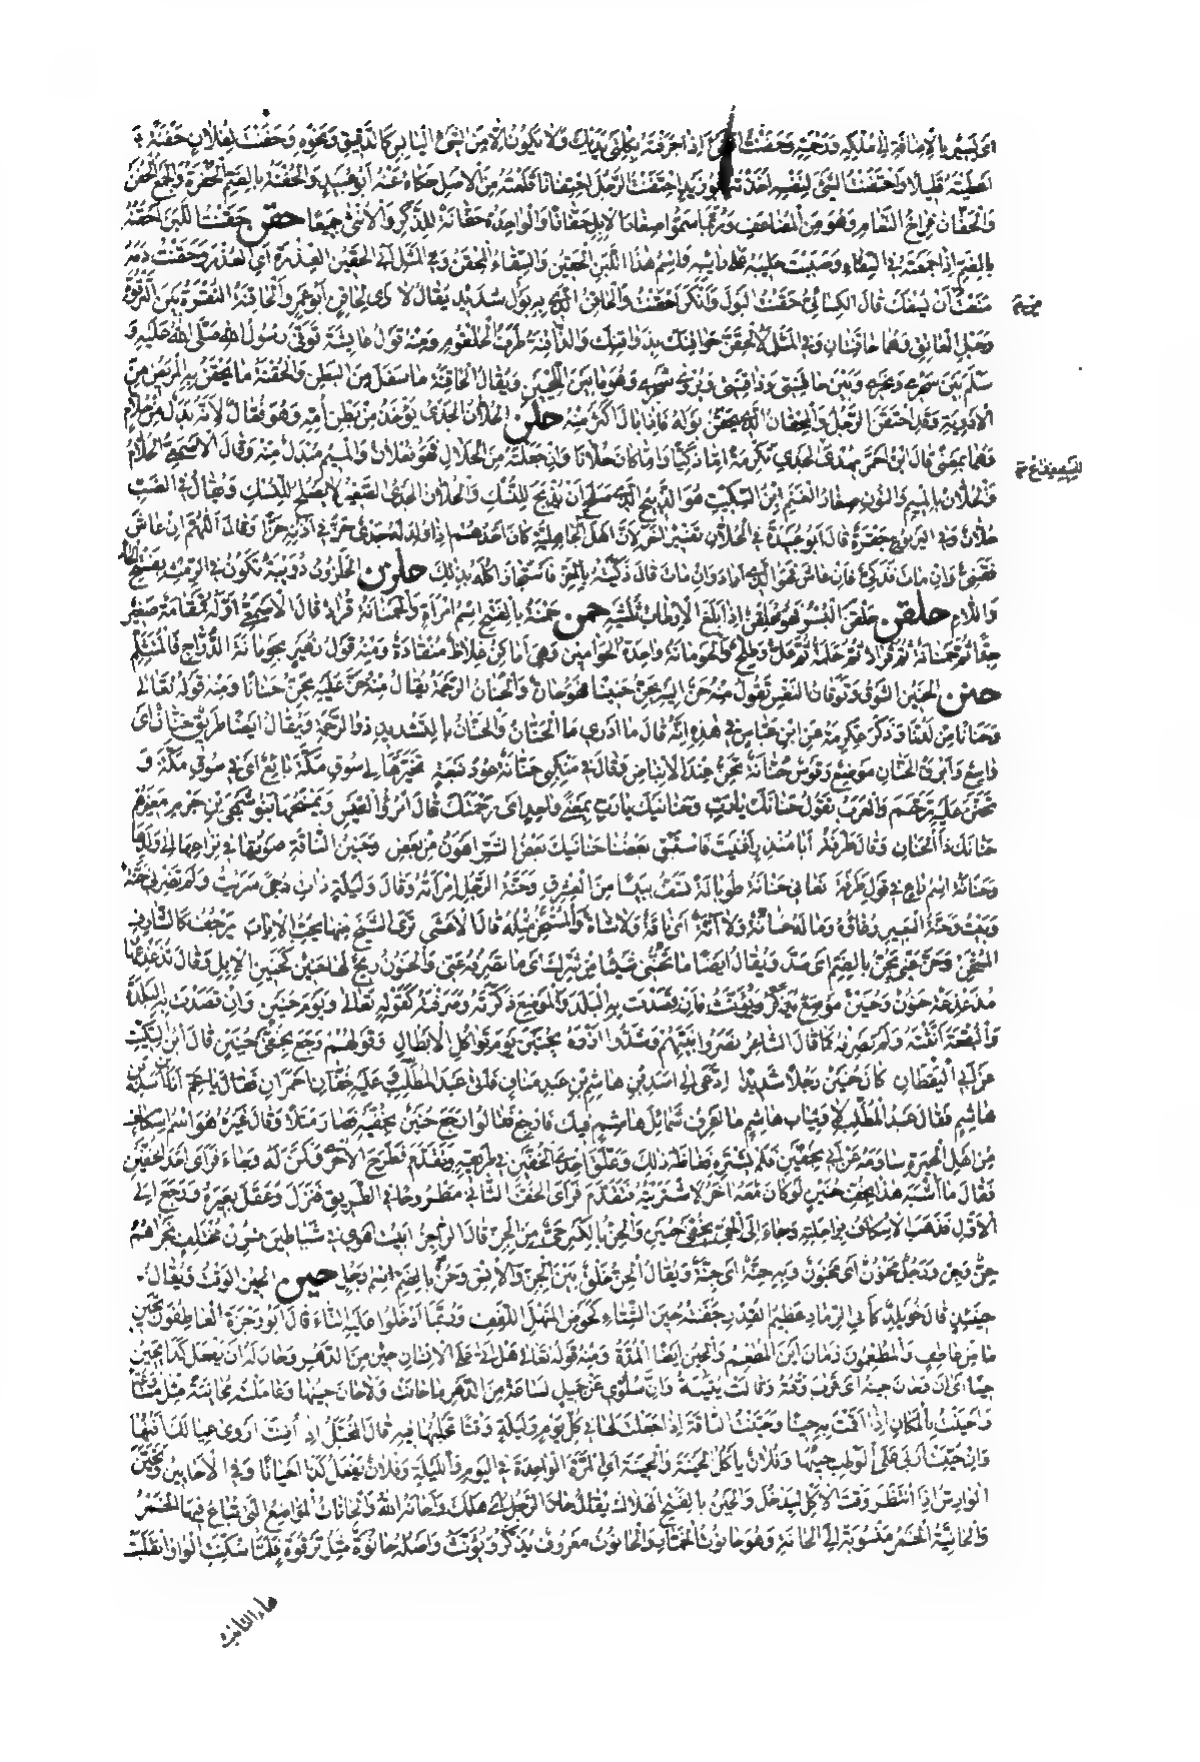 اى يسير بالاضافة الى ملكه ورحمته وحفنت الشئ اذا جرفته بكلتى يديك ولا يكون الا من الشئ اليابس كالدقيق ونحوه وحفنت لفلان حفنة
اعطيته قليلا واحتفنت الشئ لنفسى اخذته ابو زيد احتفنت الرجل احتفانا قلعته من الاصل حكاه عنه ابو عبيد والحفنة بالضم الحفرة والجمع الحفن
والحفان فراخ النعام وهو من المضاعف وربما سموا صغار الابل حفانا والواحدة حفانة للذكر والانثى جميعا حقن حقنت اللبن احقنه
بالضم اذا جمعته فى السقاء وصببت حليبه على رائبه واسم هذا اللبن الحقين والسقاء المحقن وفى المثل ابى الحقين العذرة اى العذر وحقنت دمه
منعت ان يسفك قال الكسائى حقنت البول وانكر احقنت والحاقن الذى به بول شديد يقال لا راى لحاقن ابو عمرو الحاقنة النقرة بين الترقوة
وحبل العاتق وهما حاقنتان وفى المثل لالحقن حواقنك بذواقنك والذاقنة طرف الحلقوم ومنه قول عائشة توفى رسول الله صلى الله عليه و
سلم بين سحرى ونحرى وبين حاقنتى وذاقنتى ويروى شجرى وهو ما بين اللحيين ويقال الحاقنة ما سفل من البطن والحقنة ما يحقن به المريض من
الادوية وقد احتقن الرجل والمحقان الذى يحقن بوله فاذا بال اكثر منه حلن الحلان الجدى يؤخذ من بطن امه وهو فعال لانه بدل من حلام
وهما بمعنى قال ابن احمر يهدى اليه ذراع الجدى تكرمة اما ذكيا واما كان حلانا وان جعلته من الحلال فهو فعلان والميم مبدل منه وقال الاصمعى الحلام
والحلان بالميم والنون صغار الغنم ابن السكيت هو الذبيح الذى صلح ان يذبح للنسك والحلان الجدى الصغير لا يصلح للنسك وقال فى الضب
حلان وفى اليربوع جفرة قال ابو عبيدة فى الحلان تفسير اخر لان اهل الجاهلية كان احدهم اذا ولد له جدى حز فى اذنه حزا وقال اللهم ان عاش
فقنى وان مات فذكى فان عاش فهو الذى اراد وان مات قال ذكيته بالحز فاستجاز اكله بذلك حلزن الحلزون دويبة تكون فى الرمث بفتح الحاء
واللام حلقن حلقن البسر فهو محلقن اذا بلغ الارطاب ثلثيه حمن حمنة بالفتح اسم امراة والحمنانة قراد قال الاصمعى اوله قمقامة صغير
جدا ثم حمنانة ثم قراد ثم حلمة ثم عل وطلح والحومانة واحدة الحوامين وهى اماكن غلاظ منقادة ومنه قول زهير بحومانة الدراج فالمتثلم
حنن الحنين الشوق وتوقان النفس تقول منه حن اليه يحن حنينا فهو حان والحنان الرحمة يقال منه حن عليه يحن حنانا ومنه قوله تعالى
وحنانا من لدنا وذكر عكرمة عن ابن عباس فى هذه انه قال ما ادرى ما الحنان والحنان بالتشديد ذو الرحمة ويقال ايضا طريق حنان اى
واضح وابرق الحنان موضع وقوس حنانة تحن عند الانباض وقال فى منكبى حنانة عود نبعة تخيرها لى سوق مكة بائع اى فى سوق مكة و
تحنن عليه ترحم والعرب تقول حنانك يارب وحنانيك يارب بمعنى واحد اى رحمتك قال امرؤ القيس ويمنحها بنو شمجى بن جرم معيزهم
حنانك ذا الحنان وقال طرفة ابا منذر افنيت فاستبق بعضنا حنانيك بعض الشر اهون من بعض وحنين الناقة صوتها فى نزاعها الى ولدها
وحنانة اسم راع فى قول طرفة نعانى حنانة طوبالة تسف يبيسا من العشرق وحنة الرجل امراته وقال وليلة ذات دجى سريت ولم تضرنى حنة
وبيت وحنة البعير رغاؤه وما له حانة ولا آنة اى ناقة ولا شاة والمستحن مثله قال الاعشى ترى الشيخ منها يحب الاياب يرجف كالشارف
المستحن وحن عنى يحن بالضم اى صد ويقال ايضا ما تحننى شيئا من شرك اى ما تصرفه عنى والحنون ريح لها حنين كحنين الابل وقال تذعذعها
مذعذعة حنون وحنين موضع يذكر ويؤنث فان قصدت به البلد والموضع ذكرته وصرفته كقوله تعالى ويوم حنين وان قصدت به البلدة
والبقعة انثته ولم تصرفه كما قال الشاعر نصروا نبيهم وشدوا ازره بحنين يوم تواكل الابطال وقولهم رجع بخفى حنين قال ابن السكيت
عن ابى اليقظان كان حنين رجلا شديدا ادعى الى اسد بن هاشم بن عبد مناف فاتى عبد المطلب وعليه خفان احمران فقال يا عم انا ابن اسد بن
هاشم فقال عبد المطلب لا وثياب هاشم ما اعرف شمائل هاشم فيك فارجع فقالوا رجع حنين بخفيه فصار مثلا وقال غيره هو اسم اسكاف
من اهل الحيرة ساومه اعرابى بخفين فلم يشتره فغاظه ذلك وعلق احد الخفين فى طريقه وتقدم فطرح الاخر وكمن له وجاء فراى احد الخفين
فقال ما اشبه هذا بخف حنين لو كان معه اخر لاشتريته فتقدم فراى الخف الثانى مطروحا فى الطريق فنزل وعقل بعيره ورجع الى
الاول فذهب الاسكاف براحلته وجاء الى الحى بخفى حنين والحن بالكسر حى من الجن قال الراجز ابيت اهوى فى شياطين ترن مختلف نجراهم
جن وحن ورجل محنون اى مجنون وبه حنة اى جنة ويقال الحن خلق بين الجن والانس وحن بالضم اسم رجل حين الحين الوقت ويقال
حينئذ قال خويلد كابى الرماد عظيم القدر جفنته حين الشتاء كحوض المنهل اللقف وربما ادخلوا عليه التاء قال ابو وجزة العاطفون تحين
ما من عاطف والمطعمون زمان اين المطعم والحين ايضا المدة ومنه قوله تعالى هل اتى على الانسان حين من الدهر وحان له ان يفعل كذا يحين
حينا اى ان وحان حينه اى قرب وقته وقالت بثينة وان سلوى عن جميل لساعة من الدهر ما حانت ولا حان حينها وعاملته محاينة مثل مساعة
واحينت بالمكان اذا اقمت به حينا وحينت الناقة اذا جعلت لها فى كل يوم وليلة وقتا تحلبها فيه قال المخبل اذا افنت اروى عيالك افنها
وان حينت اربى على الوطب حينها وفلان ياكل الحينة والحينة اى المرة الواحدة فى اليوم والليلة وفلان يفعل كذا احيانا وفى الاحايين وتحين
الوارش اذا انتظر وقت الاكل ليدخل والحين بالفتح الهلاك يقال حان الرجل اى هلك واحانه الله والحانات المواضع التى تباع فيها الخمر
والحانية الخمر منسوبة الى الحانة وهو حانوت الخمار والحانوت معروف يذكر ويؤنث واصله حانوة مثل ترقوة فلما سكنت الواو انقلبت
هاء التانيث